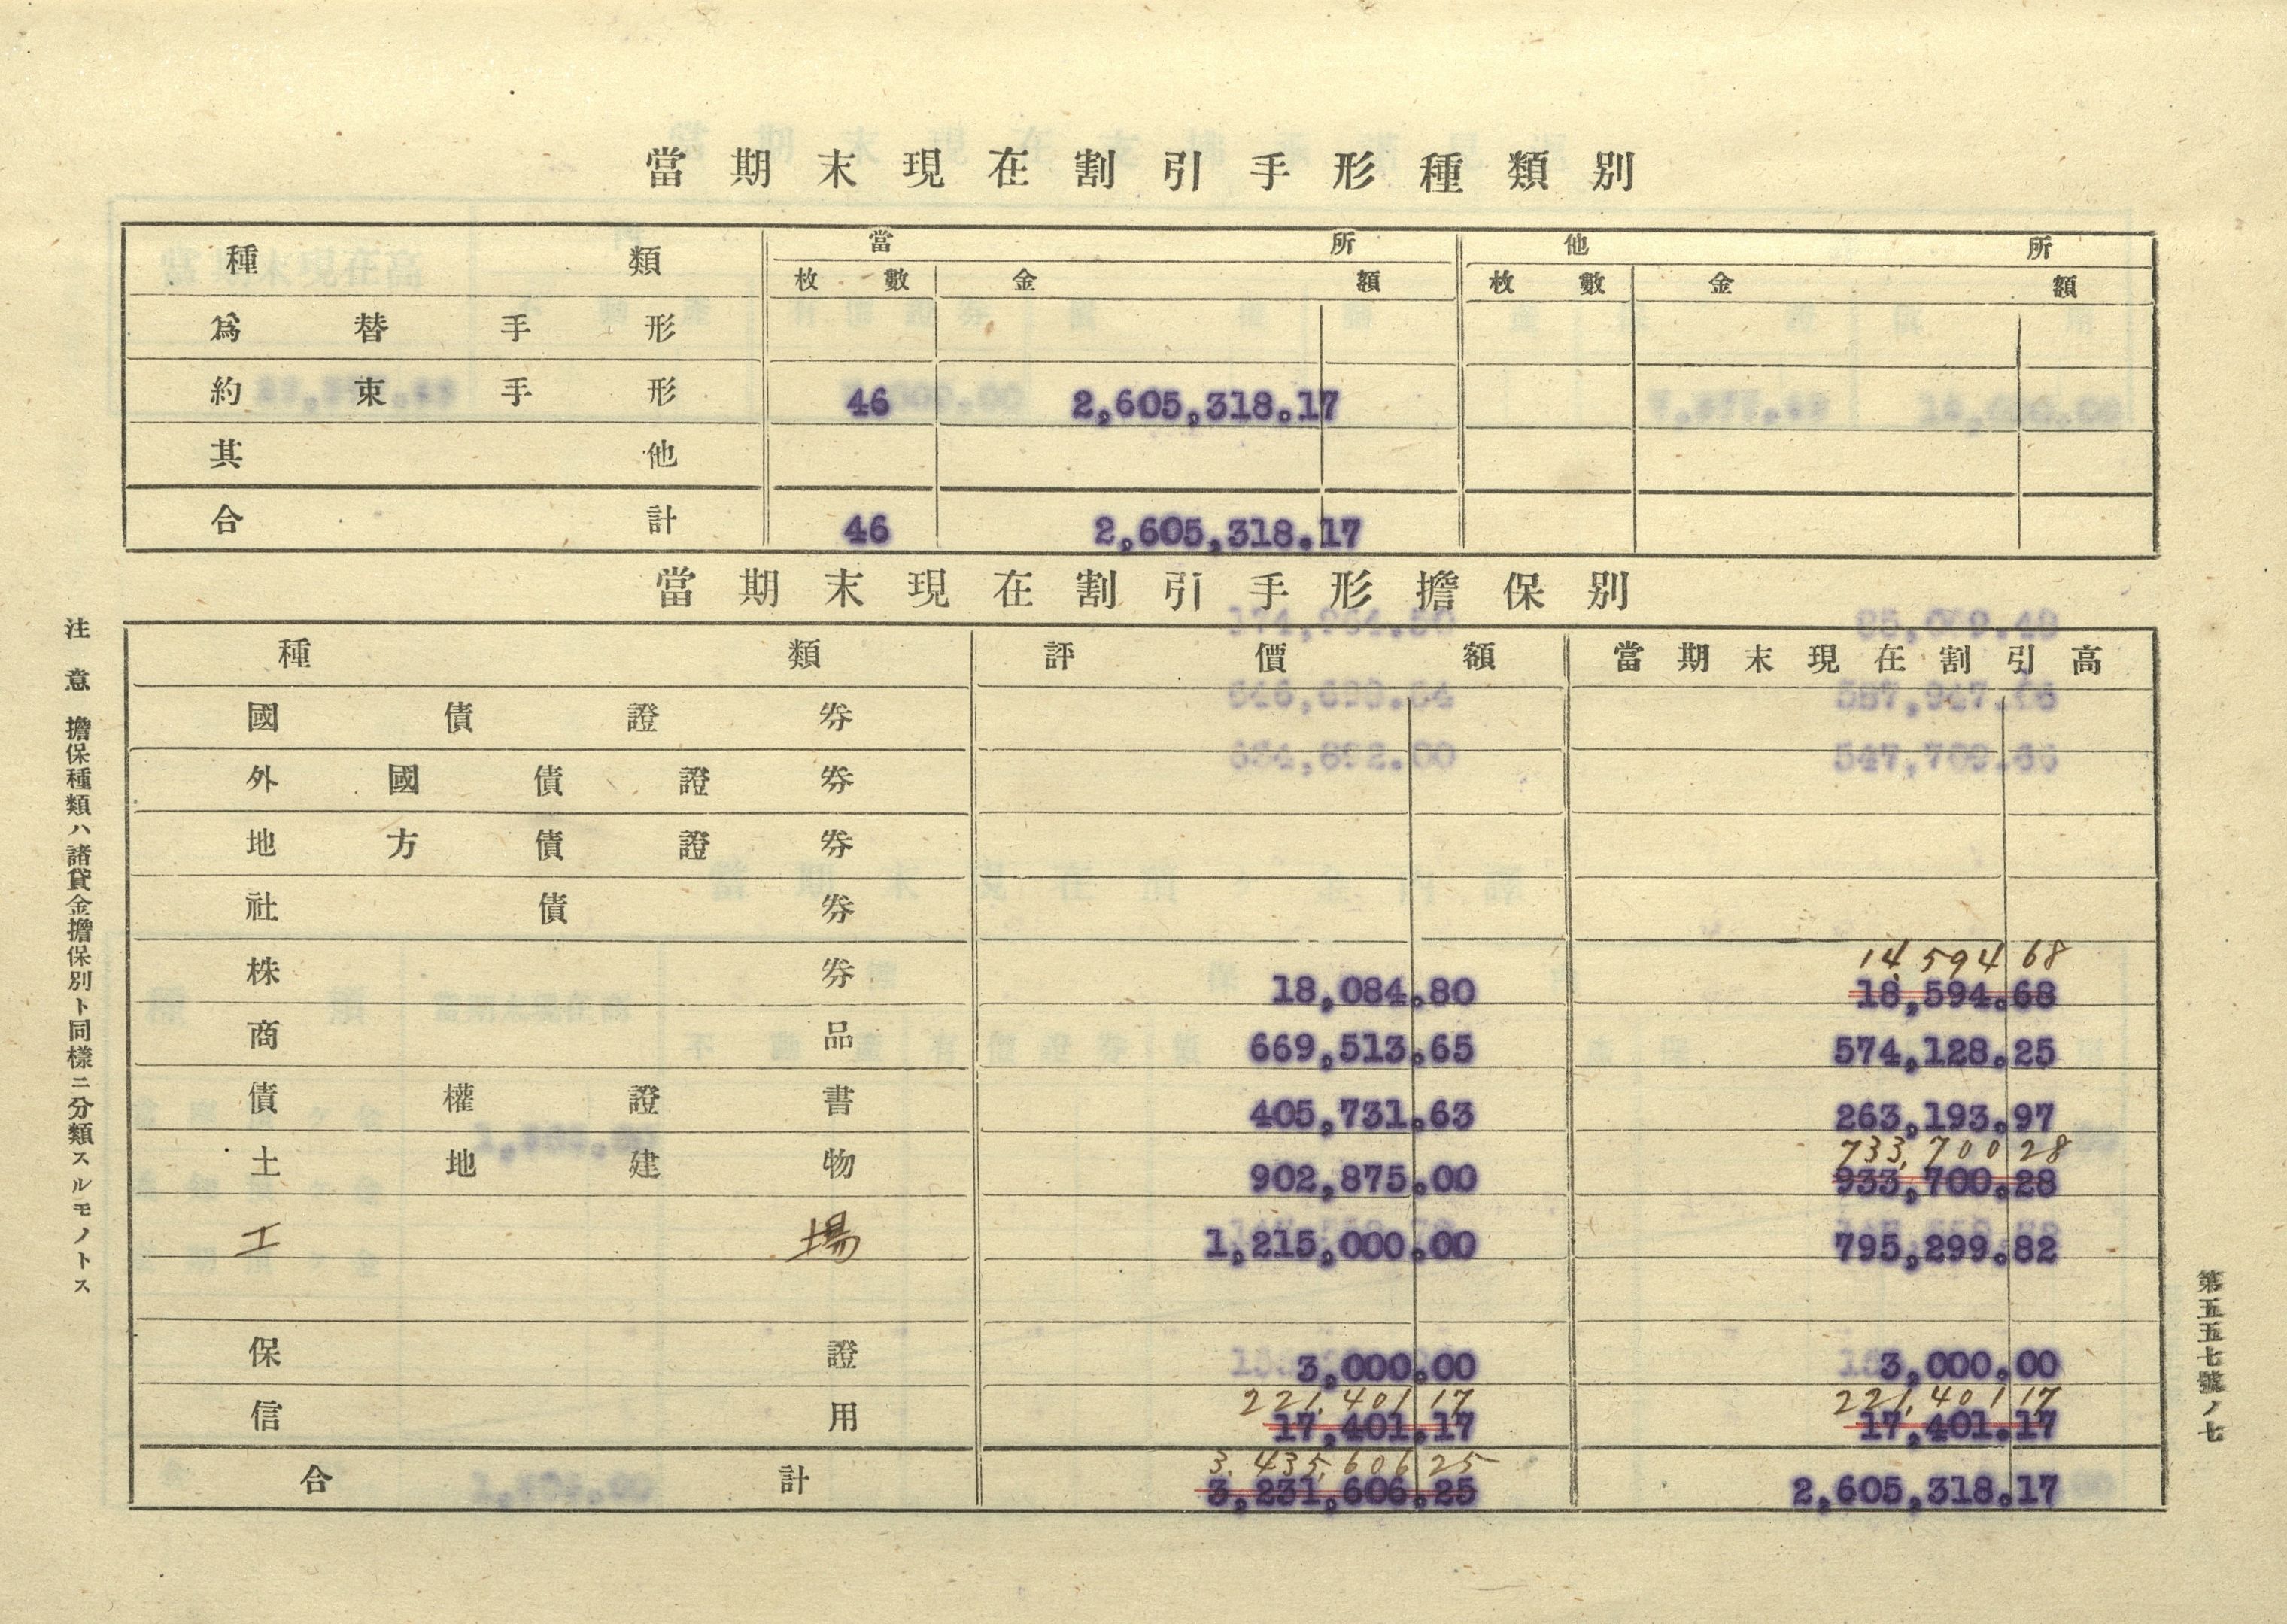 當期末現在割引手形種類別
種類 當所 他所
枚數 金額 枚數 金額
爲替手形
約束手形 46 2,605,318.17
其他
合計 46 2,605,318.17
當期末現在割引手形擔保別
種類 評價額 當期末現在割引高
國債證券
外國債證券
地方債證券
社債券
14,594 68
株券 18,084.80 18,594.68
商品 669,513.65 574,128.25
債權證書 405,731.63 263,193.97
733,700 28
土地建物 902,875.00 933,700.28
工場 1,215,000.00 795,299.82
保證 3,000.00 3,000.00
221,401 17 221,401 17
信用 17,401.17 17,401.17
3,435,606 25
合計 3,231,606.25 2,605,318.17
注意 擔保種類ハ諸貸金擔保別ト同樣ニ分類スルモノトス
第五五七號ノ七